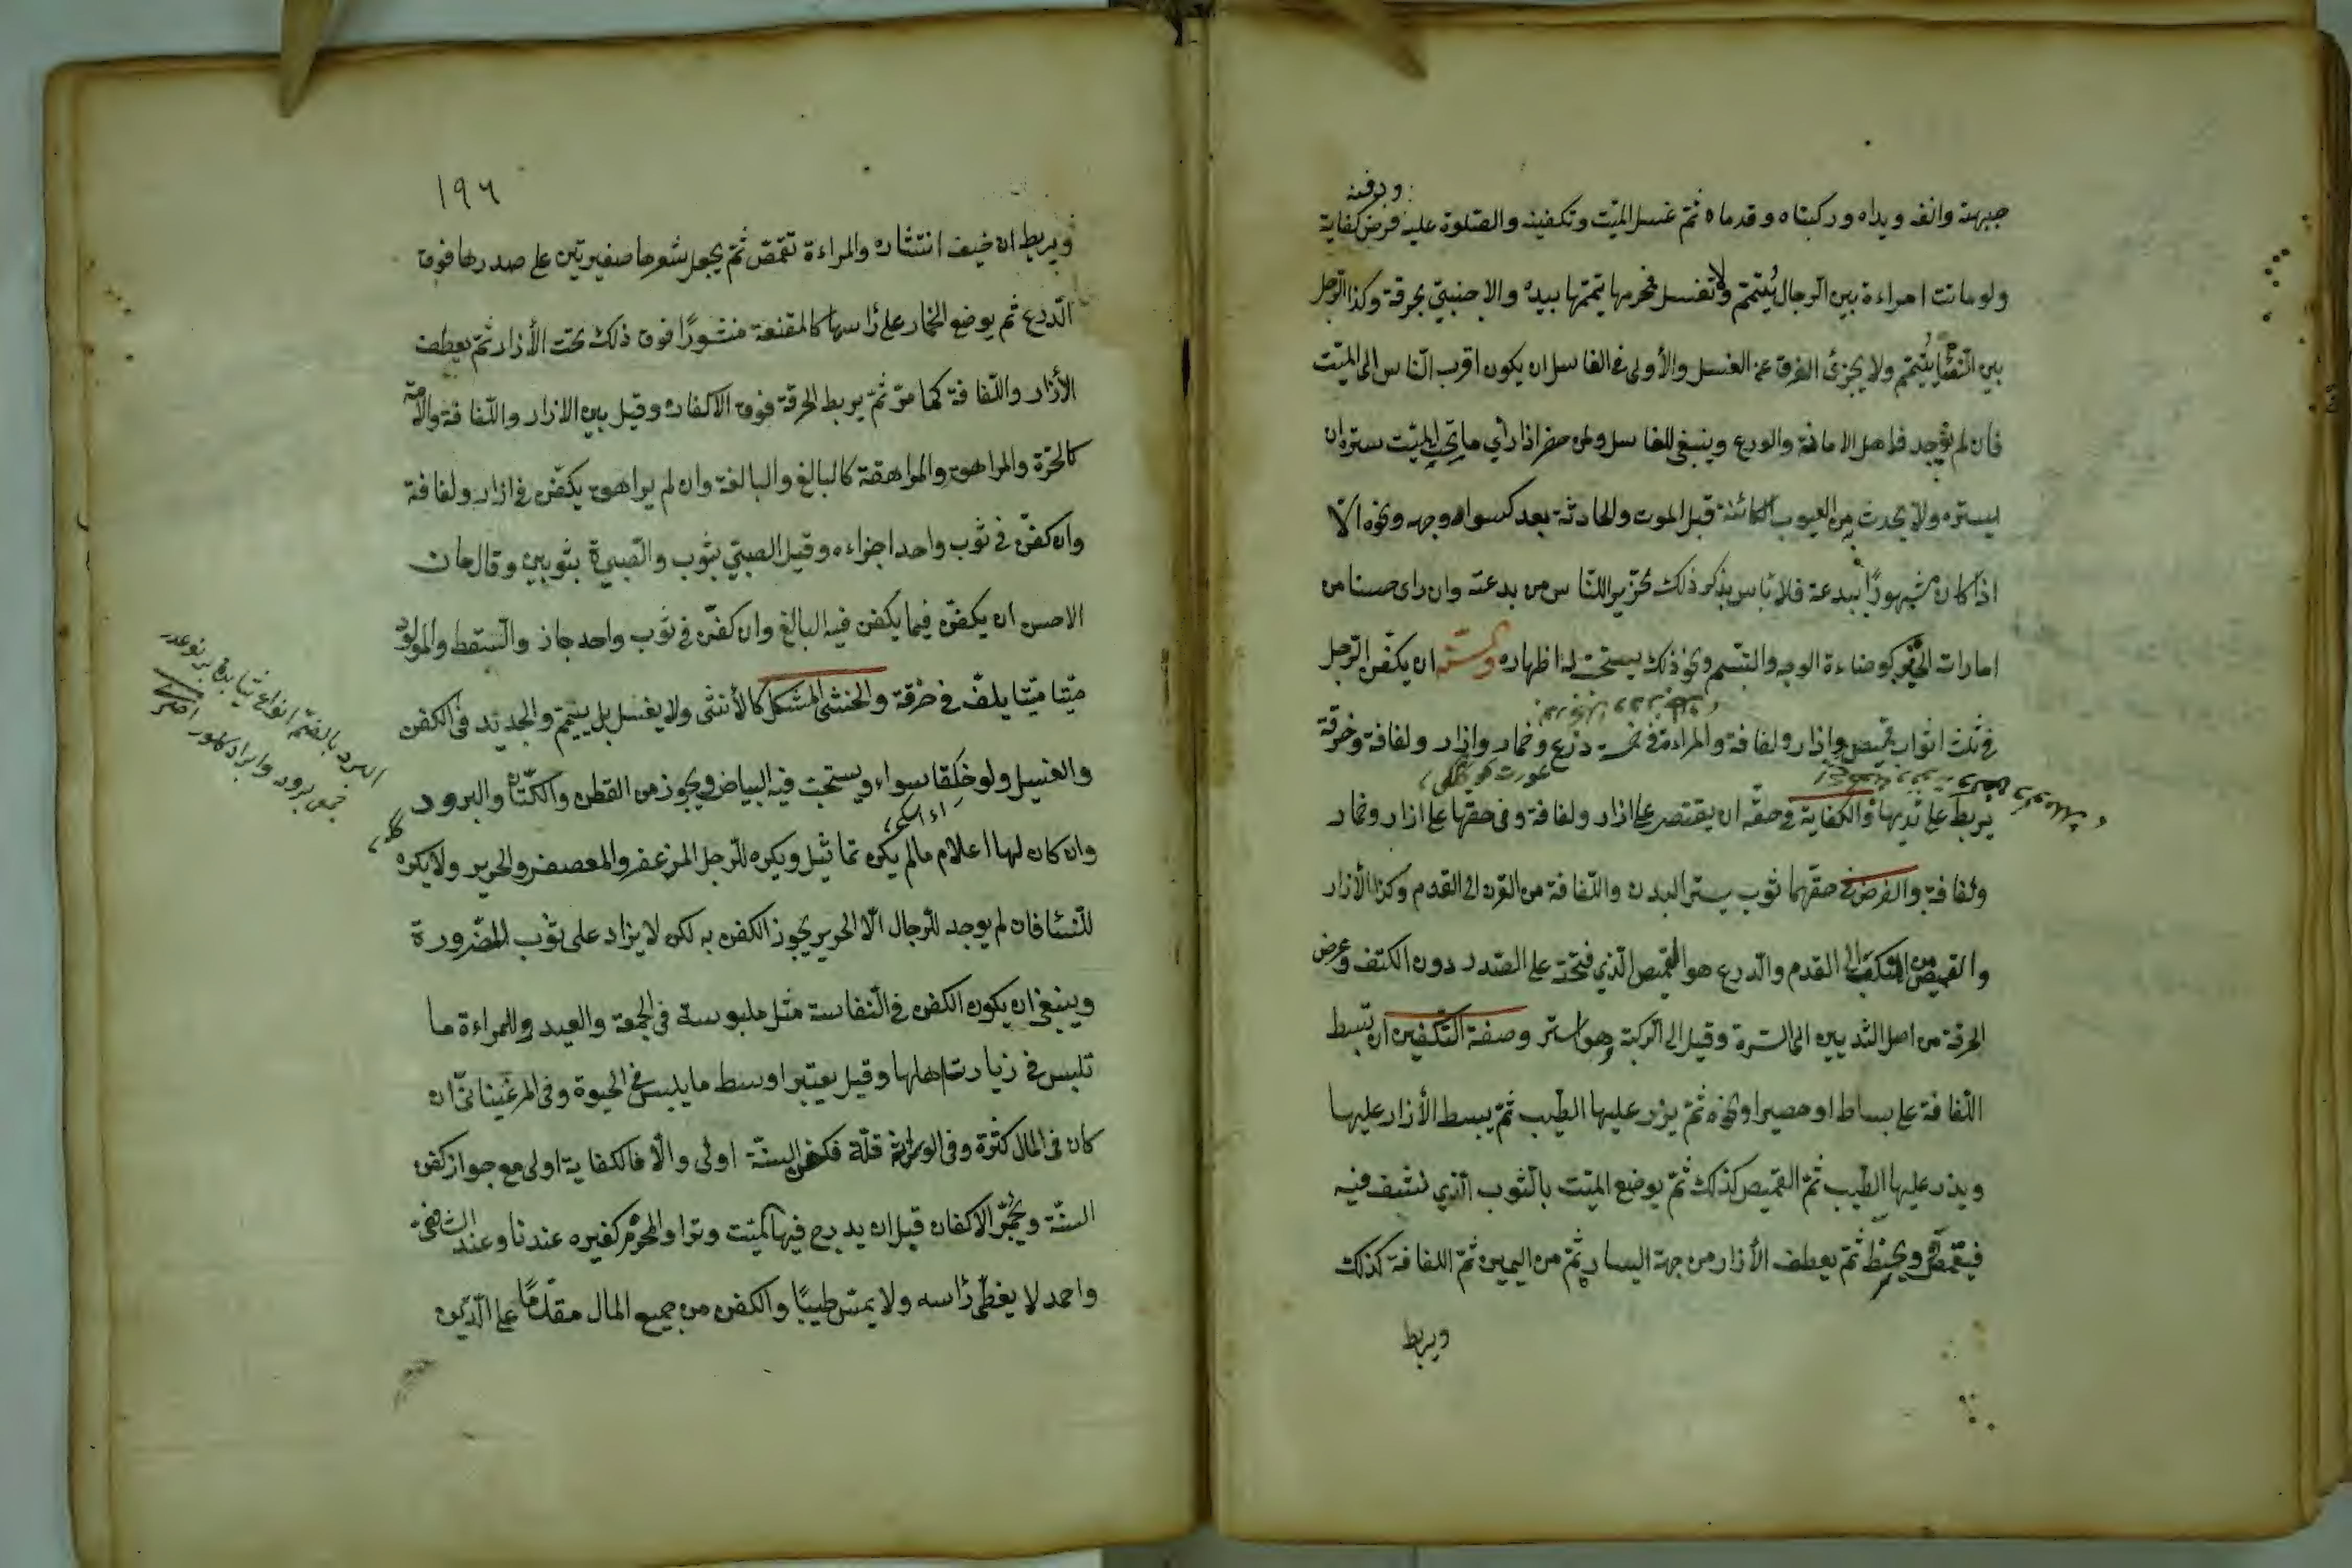 ودفنه
جبهته وانفه ويداه وركبتاه وقدماه ثم غسل الميت وتكفينه والصلوة عليه فرض كفاية
ولو ماتت امراءة بين الرجال يُتيمم ولا تغسل فمحرمها يتيممها بيده والاجنبي بخرقة وكذا الرجل
بين النساء يُتيمم ولا يجزئ الغرق عن الغسل والأولى في الغاسل ان يكون اقرب الناس الى الميت
فان لم يوجد فاهل الامانة والورع وينبغي للغاسل ولمن حضر اذا رأي ما يجب للميت ستره ان
يستره ولا يحدث به من العيوب الكائنة قبل الموت والحادثة بعد كسواد وجهه ونحوه الّا
اذا كان مشهورًا ببدعة فلا بأس بذكر ذلك تحذيرا للناس من بدعته وان راى حسنا من
امارات الخير كوضاءة الوجه والتبسم ونحو ذلك يستحب له اظهاره والسنة ان يكفن الرجل
في ثلث اثواب قميص وازار ولفافة والمراءة في خمسة درع وخمار وازار ولفافة وخرقة
يربط على ثديها والكفاية في حقه ان يقتصر على ازار ولفافة وفي حقها على ازار وخمار
ولفافة والفرض في حقهما ثوب يستر البدن واللفافة من القرن الى القدم وكذا الأزار
والقميص من المنكب الى القدم والدرع هو القميص الذي فتحته على الصدر دون الكتف وعرض
الخرقة من اصل الثديين الى السرة وقيل الى الركبة وهو استر وصفة التكفين ان تبسط
اللفافة على بساط او حصير او نحوه ثم يذر عليها الطيب ثم يبسط الأزار عليها
ويذر عليها الطيب ثم القميص كذلك ثم يوضع الميت بالثوب الذي نشف فيه
فيقمص ويحنط ثم يعطف الأزار من جهة اليسار ثم من اليمين ثم اللفافة كذلك
ويربط
١٩٦
ويربط ان خيف انتشاره والمراءة تقمص ثم يجعل شعرها صفيرتين على صدرها فوق
الدرع ثم يوضع الخمار على رأسها كالمقنعة منشورًا فوق ذلك تحت الأزار ثم يعطف
الأزار واللفافة كما مرّ ثم يربط الخرقة فوق الاكفان وقيل بين الازار واللفافة والامة
كالحرّة والمراهق والمراهقة كالبالغ والبالغة وان لم يراهق يكفن في ازار ولفافة
وان كفن في ثوب واحد اجزاءه وقيل الصبي بثوب والصبية بثوبين وقال خان
الاحسن ان يكفن فيما يكفن فيه البالغ وان كفن في ثوب واحد جاز والسقط والمولود
ميّتا يلف في خرقة والخنثى المشكل كالأنثى ولا يغسل بل ييمم والجديد في الكفن
والغسيل ولو خلقا سواء ويستحب فيه البياض ويجوز من القطن والكتان والبرود
البرد بالضم انواع ثيابدن بر نوعدر
جمع برود وابراد كلور اختري
وان كان لها اعلام مالم يكن تماثيل ويكره للرجل المزعفر والمعصفر والحرير ولا يكره
للنساء فان لم يوجد للرجال الّا الحرير يجوز الكفن به لكن لا يزاد على ثوب للضرورة
وينبغي ان يكون الكفن في النفاسة مثل ملبوسه في الجمعة والعيد وللمراءة ما
تلبس في زيارت اهلها وقيل يعتبر اوسط ما يلبس في الحيوة وفي المرغيناني ان
كان في المال كثرة وفي الورثة قلّة فكفن السنّة اولى والّا فالكفاية اولى مع جواز كفن
السنّة ويجمر الاكفان قبل ان يدرج فيها الميت وترا والمحرم كغيره عندنا وعند الشافعي
واحمد لا يغطى رأسه ولا يمس طيبًا والكفن من جميع المال مقدّمًا على الدين